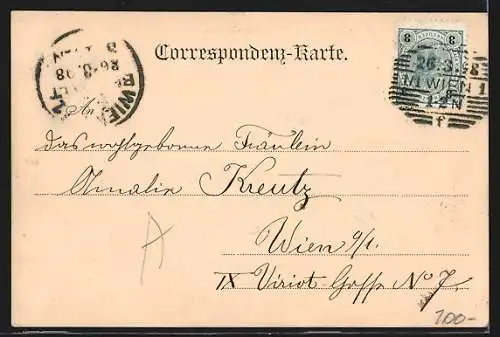 Correspondenz-Karte.
8 8
26.3.98
1/1 WIEN 1
12N
f
WIEN
26.3.98
An
das wohlgeborne Fräulein
Amalie Kreutz
Wien 9/1.
IX Viriot Gasse No 7.
A
100-